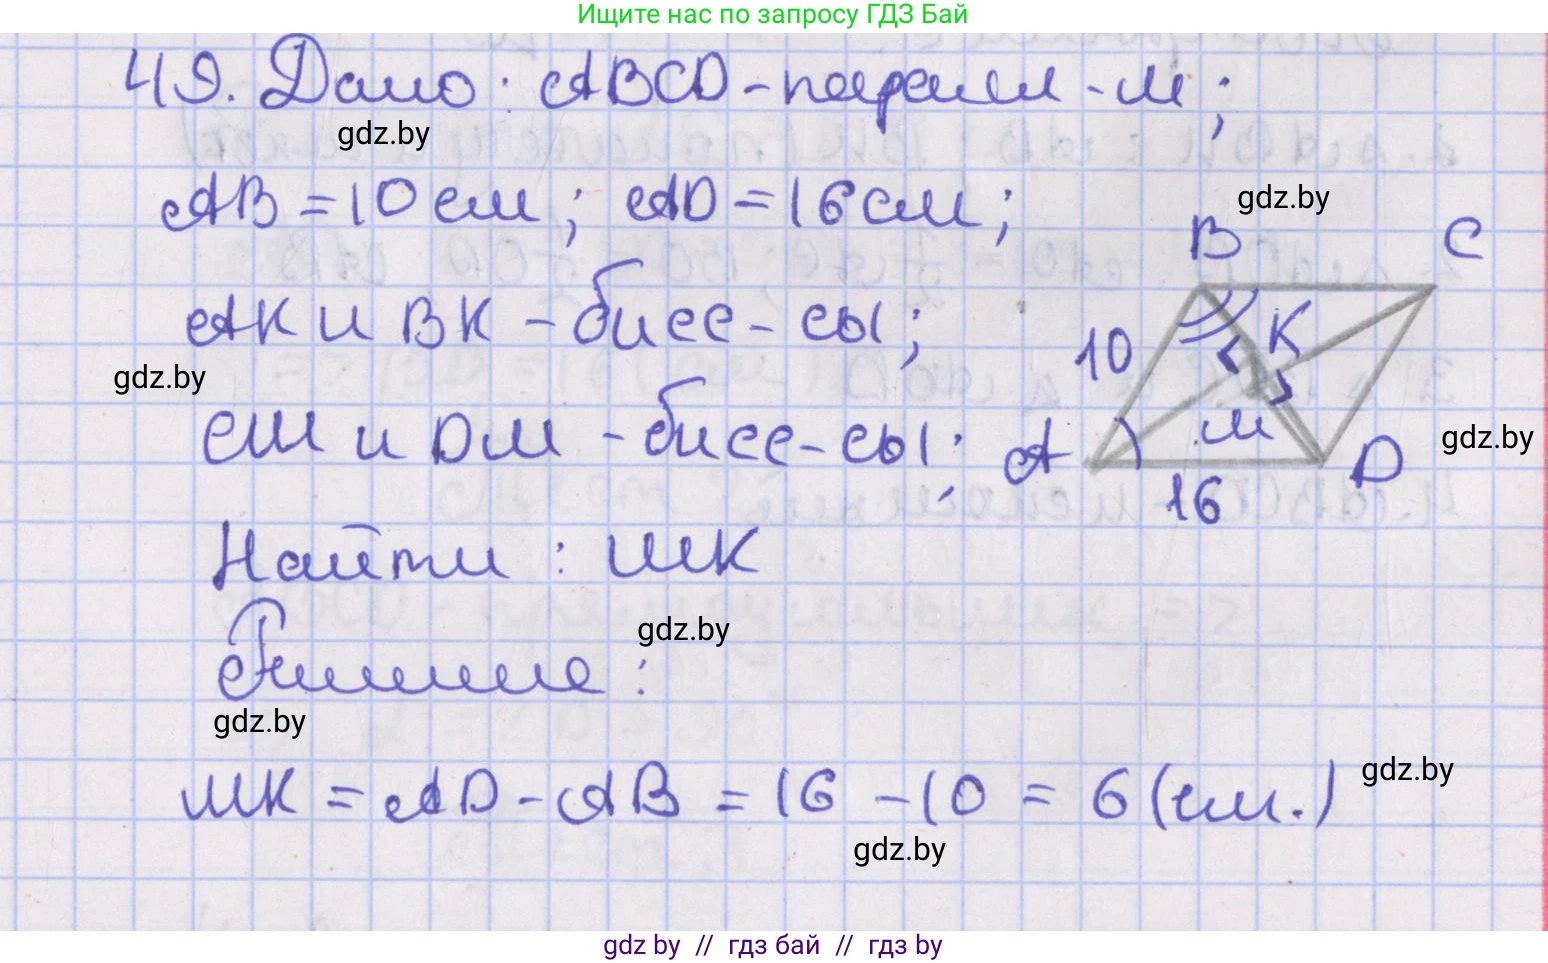 Ищите нас по запросу ГДЗ Бай
49. Дано: ABCD - паралл - м;
gdz.by
AB = 10 см; AD = 16 см;
gdz.by
B C
AK и BK - бисс - сы;
10 K
gdz.by
CM и DM - бисс - сы;
A M D
gdz.by
16
Найти: MK
gdz.by
Решение:
gdz.by
MK = AD - AB = 16 - 10 = 6 (см.)
gdz.by
gdz.by
gdz by // гдз бай // гдз by